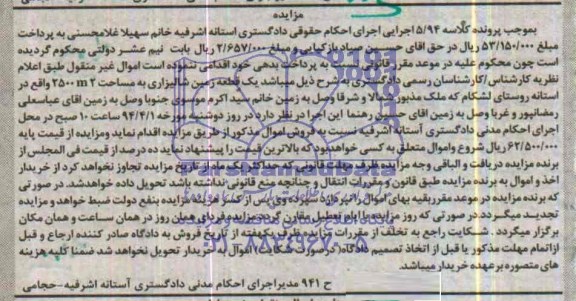 مزایده
بموجب پرونده کلاسه ۵/۹۴ اجرایی اجرای احکام حقوقی دادگستری آستانه اشرفیه خانم سهیلا غلامحسنی به پرداخت
مبلغ ۵۳/۱۵۰/۰۰۰ ریال در حق اقای حسین صیاد بازکیایی و مبلغ ۲/۶۵۷/۰۰۰ ریال بابت نیم عشر دولتی محکوم گردیده
است چون محکوم علیه در موعد مقرر قانونی نسبت به پرداخت بدهی خود اقدامی ننموده است اموال غیر منقول طبق اعلام
نظریه کارشناس/کارشناسان رسمی دادگستری به شرح ذیل میباشد یک قطعه زمین شالیزاری به مساحت ۲۵۰۰ m۲ واقع در
استانه روستای لشکام که ملک مذبور شمالا و شرقا وصل به زمین خانم سید اکرم موسوی جنوبا وصل به زمین اقای عباسعلی
رمضانپور و غربا وصل به زمین اقای حسن رهنما این اجرا در نظر دارد در روز دوشنبه مورخه ۹۴/۴/۱ ساعت ۱۰ صبح در محل
اجرای احکام مدنی دادگستری آستانه اشرفیه نسبت به فروش اموال مذکور از طریق مزایده اقدام نماید ومزایده از قیمت پایه
۶۲/۵۰۰/۰۰۰ ریال شروع واموال متعلق به کسی خواهدبود که بالاترین قیمت را پیشنهاد نماید ده درصد از قیمت فی المجلس از
برنده مزایده دریافت و الباقی وجه مزایده ظرف مهلت قانونی که حداکثر یک ماه از تاریخ مزایده تجاوز نخواهد کرد از خریدار
اخذ و اموال به برنده مزایده طبق قانون و مقررات انتقال و چنانچه منع قانونی نداشته باشد تحویل داده خواهدشد. در صورتی
که برنده مزایده در موعد مقرر بقیه بهای اموال را نپردازد سپرده وی پس از کسر هزینه مزایده بنفع دولت ضبط خواهد و مزایده
تجدید میگردد.در صورتی که روز مزایده با ایام تعطیل مقارن گردد مزایده فردای همان روز در همان ساعت و همان مکان
برگزار میگردد .شکایت راجع به تخلف از مقررات مزایده ظرف یکهفته از تاریخ فروش به دادگاه صادر کننده ارجاع و قبل
ازاتمام مهلت مذکور یا قبل از اتخاذ تصمیم دادگاه (درصورت شکایت) اموال به خریدار تحویل نخواهد شد ضمنا کلیه هزینه
های متصوره برعهده خریدار میباشد.
ح ۹۴۱ مدیراجرای احکام مدنی دادگستری آستانه اشرفیه-حجامی